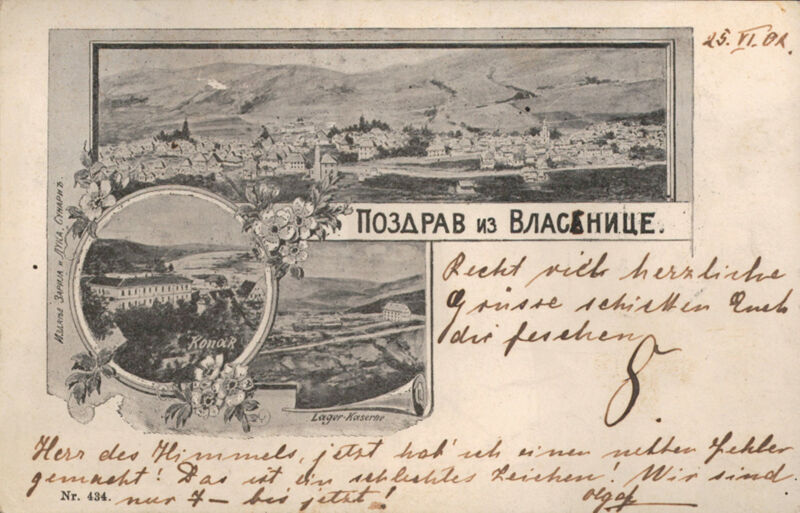 25. VI. 02.
ПОЗДРАВ ИЗ ВЛАСЕНИЦЕ.
Издање Зарија и Лука Сунарић
Konak
Lager-Kaserne
Recht viele herzliche
Grüsse schicken Euch
die feschen
8.
Herr des Himmels, jetzt hab' ich einen netten Fehler
gemacht! Das ist ein schlechtes Zeichen! Wir sind
nur 7 – bis jetzt!
Olga
Nr. 434.